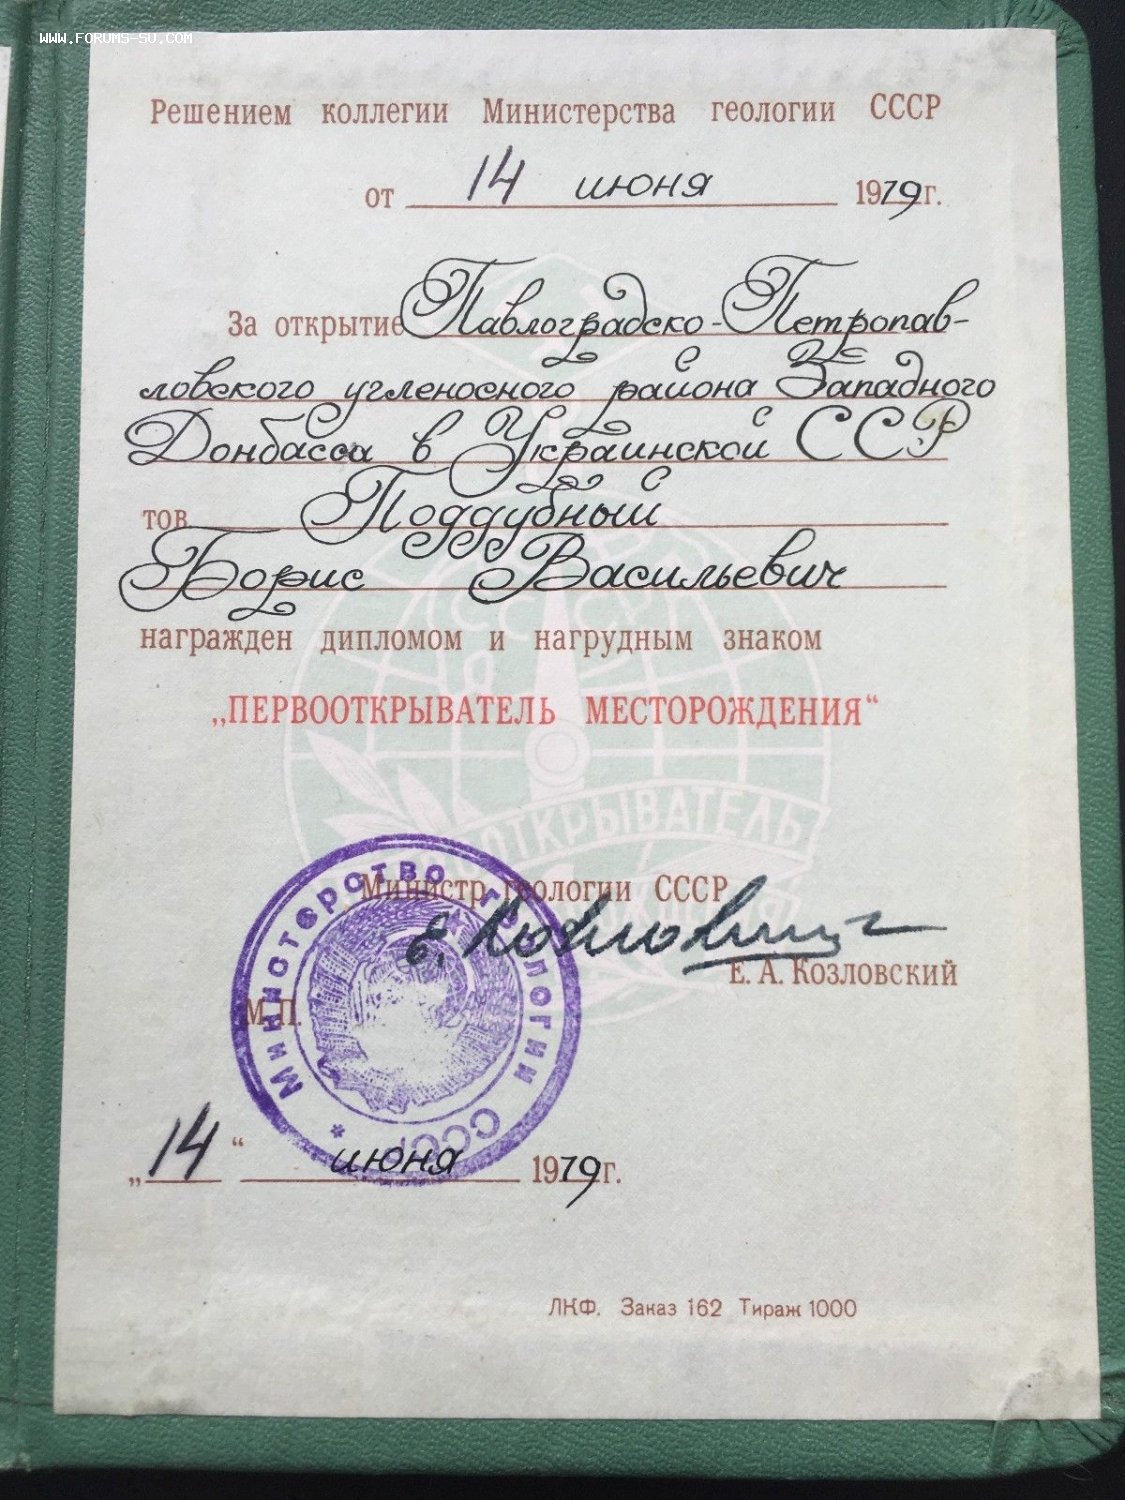 WWW.FORUMS-SU.COM
Решением коллегии Министерства геологии СССР
от 14 июня 1979г.
За открытие Павлоградско-Петропав-
ловского угленосного района Западного
Донбасса в Украинской ССР
тов. Поддубный
Борис Васильевич
награжден дипломом и нагрудным знаком
„ПЕРВООТКРЫВАТЕЛЬ МЕСТОРОЖДЕНИЯ“
Министр геологии СССР
Е. Козловский
Е. А. КОЗЛОВСКИЙ
М.П.
Министерство геологии СССР *
„14“ июня 1979г.
ЛКФ. Заказ 162 Тираж 1000